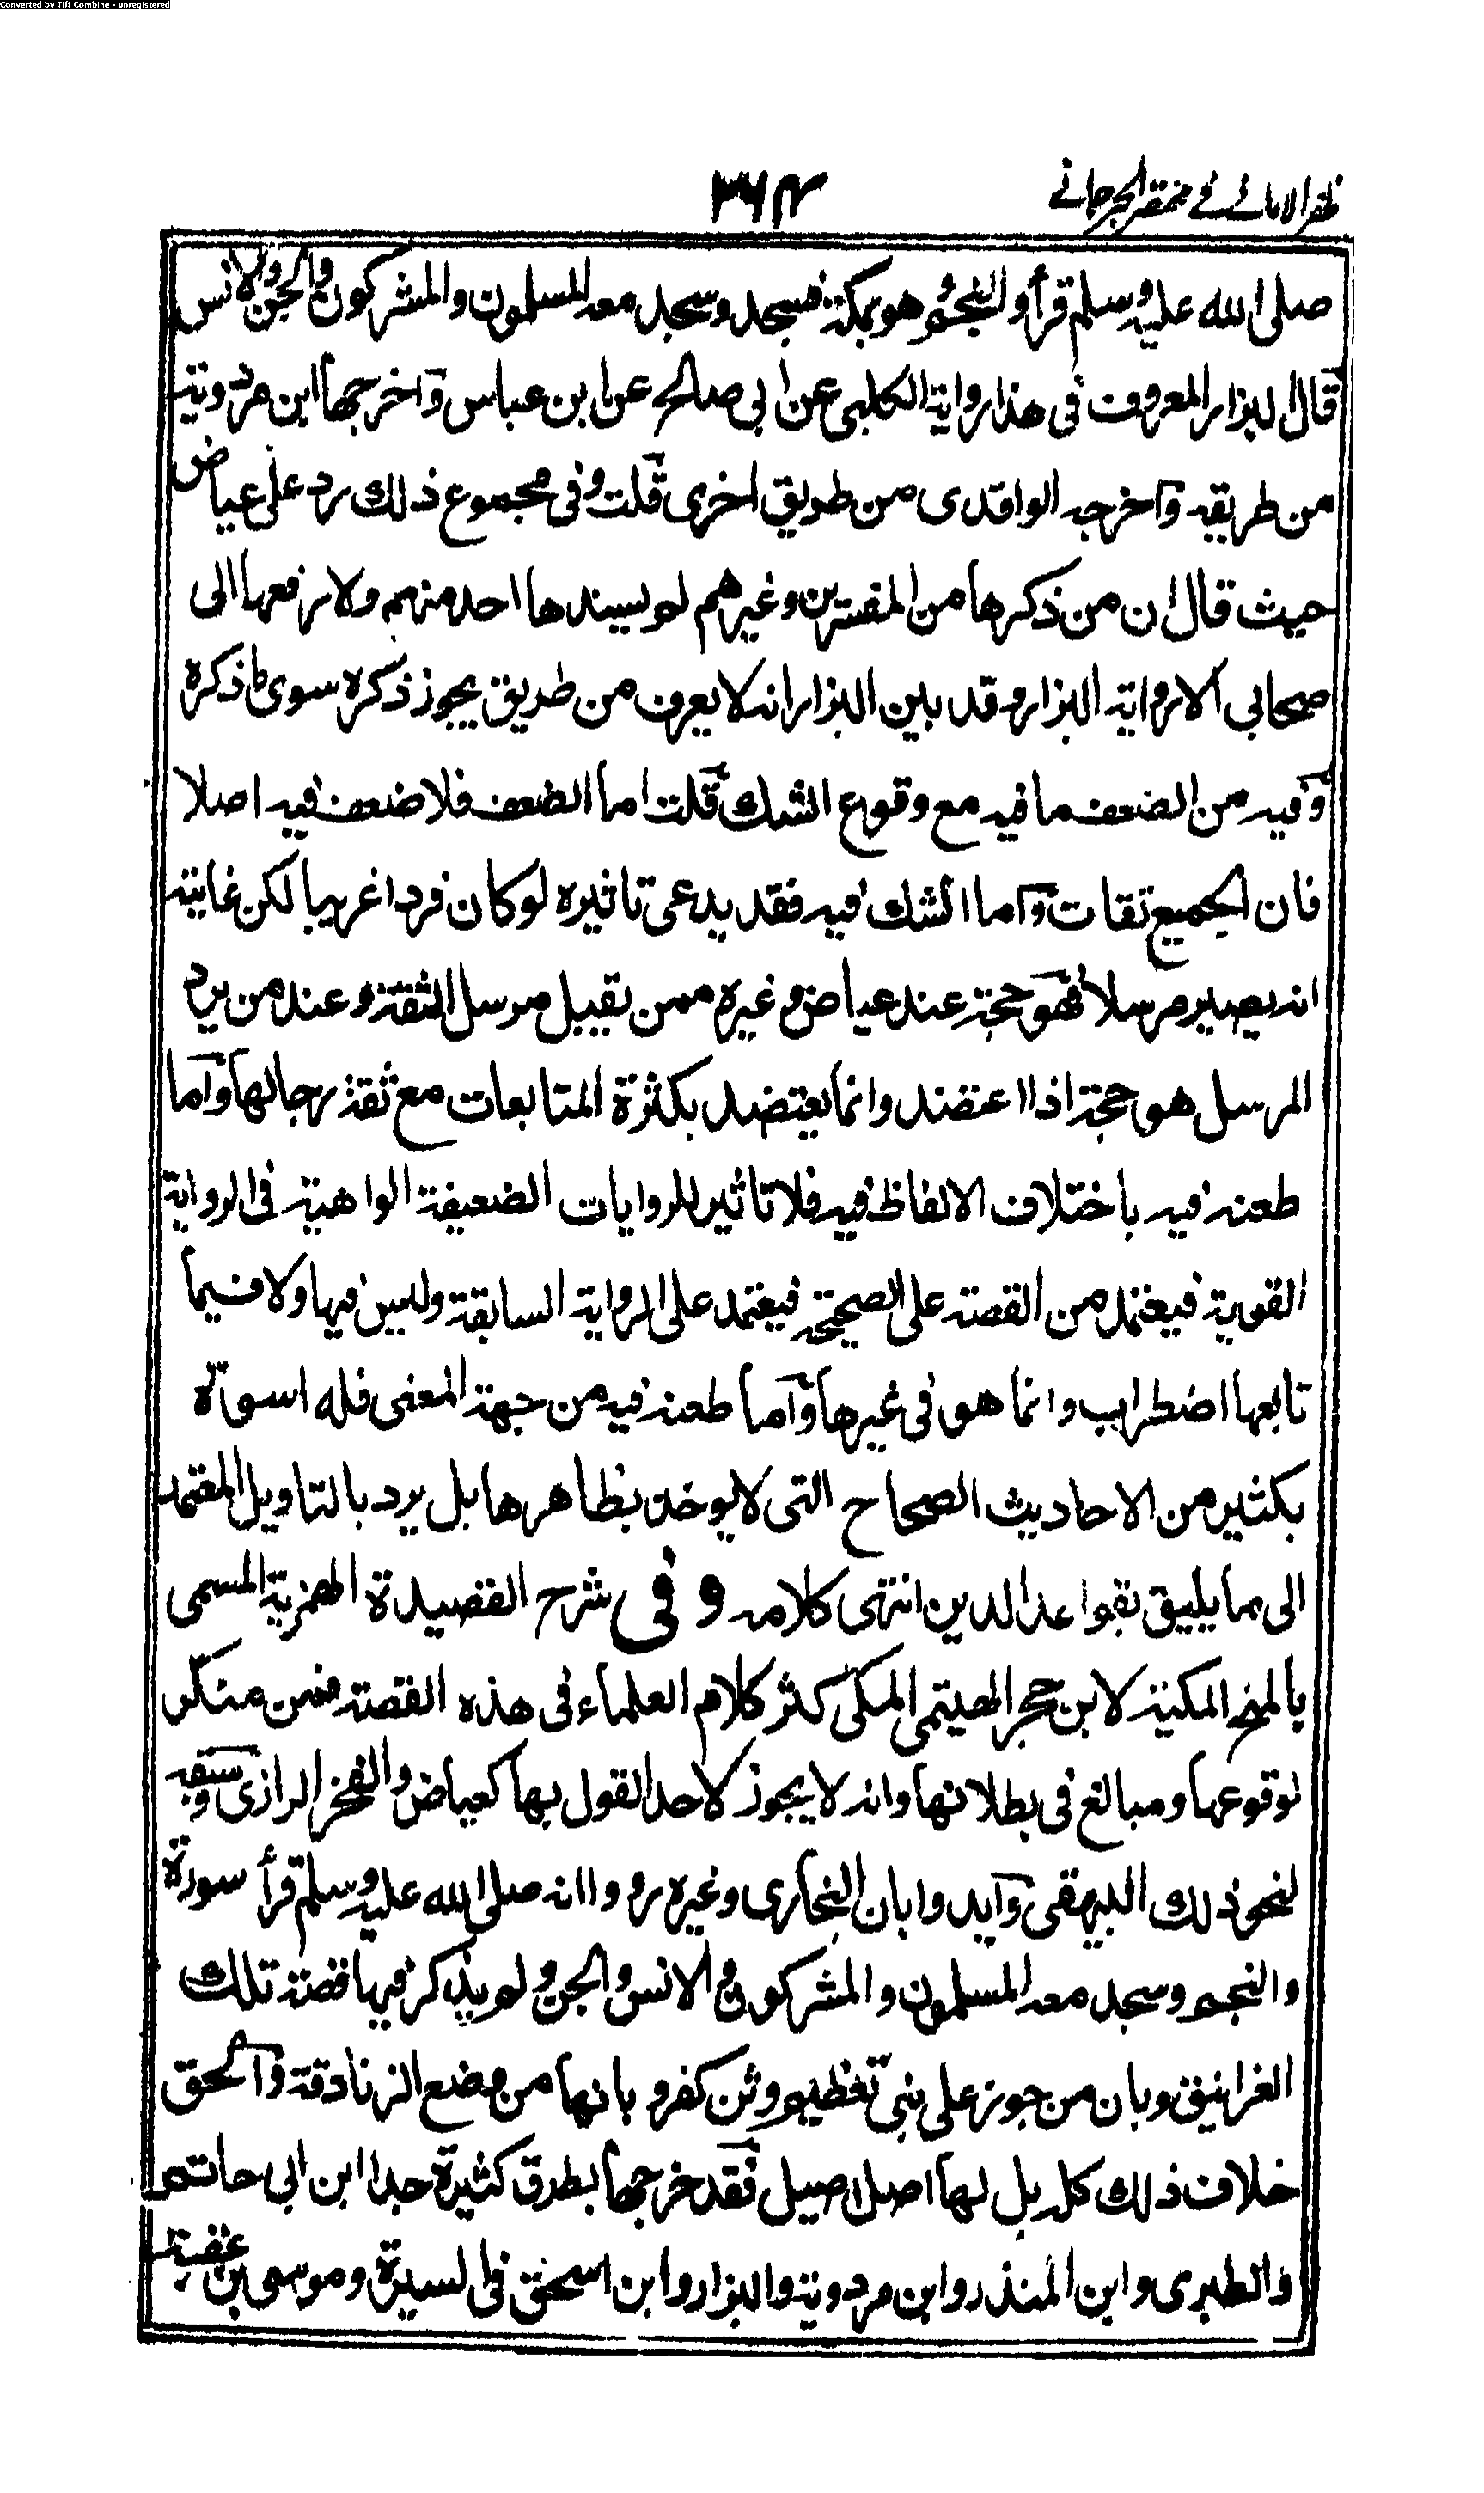 Converted by Tiff Combine - unregistered
ظفر الامانی فی مختصر الجرجانی
٣٦٢
صلی الله علیه وسلم قرأ والنجم وهو بمكة فسجد وسجد معه المسلمون والمشركون والجن والانس
قال البزار المعروف فی هذا رواية الكلبی عن ابی صالح عن ابن عباس وآخرجها ابن مردوية
من طريقه وآخرجه الواقدی من طريق اخری قلت وفی مجموع ذلك رد علی عياض
حيث قال ان من ذكرها من المفسرين وغيرهم لم يسندها احد منهم ولا رفعها الی
صحابی الا رواية البزار وقد بين البزار انه لا يعرف من طريق يجوز ذكره سوی ما ذكره
وفيه من الضعف ما فيه مع وقوع الشك قلت اما الضعف فلا ضعف فيه اصلا
فان الجميع ثقات وآما الشك فيه فقد يدعی تاثيره لو كان فردا غريبا لكن غايته
انه يصير مرسلا فهو حجة عند عياض وغيره ممن يقبل مرسل الثقة وعند من يرد
المرسل هو حجة اذا اعتضد وانما يعتضد بكثرة المتابعات مع ثقة رجالها وآما
طعنه فيه باختلاف الالفاظ فيه فلا تاثير للروايات الضعيفة الواهية فی الرواية
القوية فيعتمد من القصة علی الصحيحة فيعتمد علی الرواية السابقة وليس فيها ولا فيما
تابعها اضطراب وانما هو فی غيرها وآما طعنه فيه من جهة المعنی فله اسوة
بكثير من الاحاديث الصحاح التی لا يوخذ بظاهرها بل يرد بالتاويل المعتمد
الی ما يليق بقواعد الدين انتهی كلامه وفی شرح القصيدة الهمزية المسمی
بالمنح المكية لابن حجر الهيتمی المكی كثر كلام العلماء فی هذه القصة فمن منكر
لوقوعها ومبالغ فی بطلانها وانه لا يجوز لاحد القول بها كعياض والفخر الرازی وسبقه
لنحو ذلك البيهقی وآيد وا بان البخاری وغيره رووا انه صلی الله عليه وسلم قرأ سورة
والنجم وسجد معه المسلمون والمشركون والانس والجن ولم يذكر فيها قصة تلك
الغرانيق وبان من جوز علی نبی تعظيم وثن كفر وبانها من وضع الزنادقة وآلحق
خلاف ذلك كله بل لها اصل اصيل فقد خرجها بطرق كثيرة جدا ابن ابی حاتم
والطبری وابن المنذر وابن مردوية والبزار وابن اسحٰق فی السيرة وموسی بن عقبة